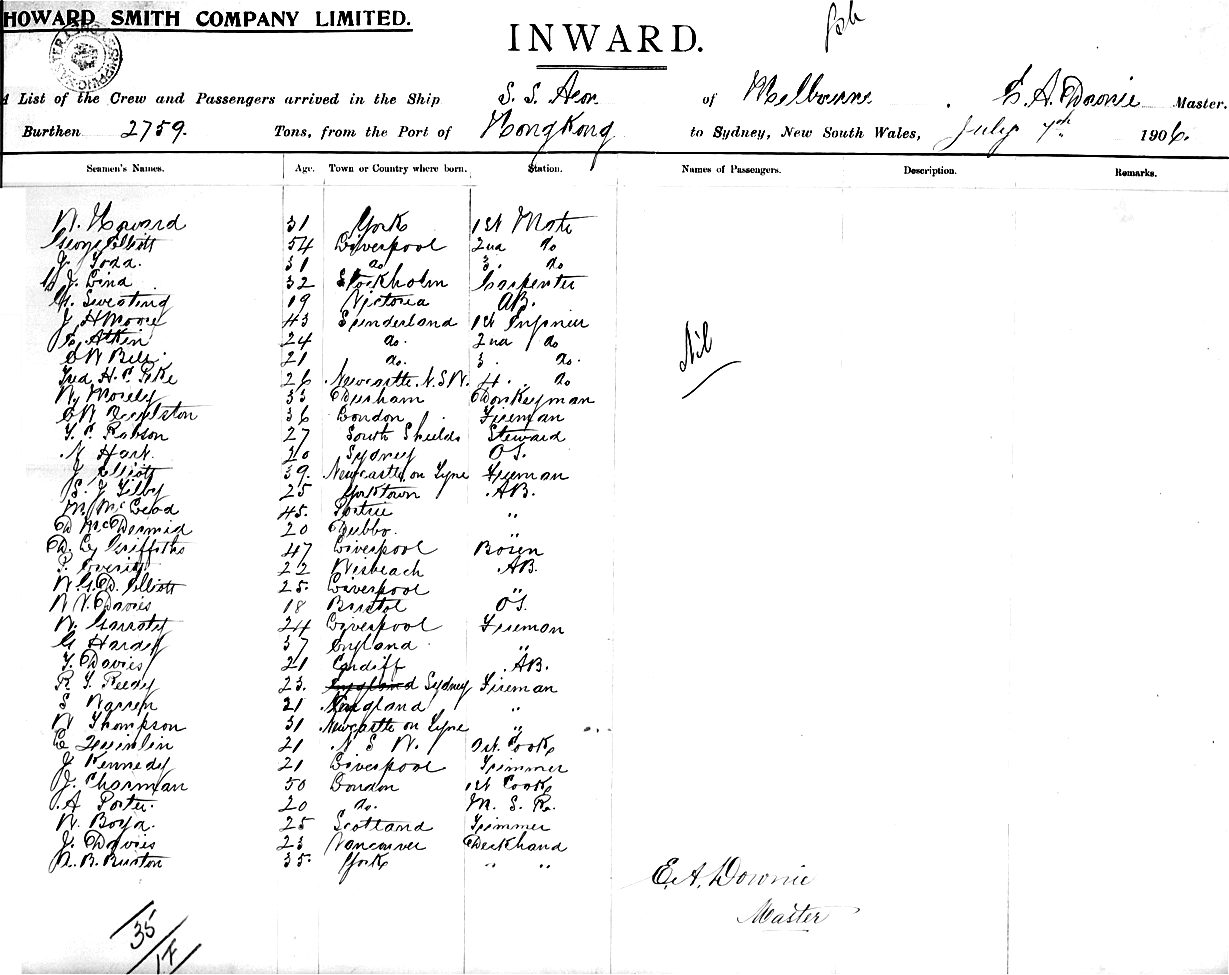 HOWARD SMITH COMPANY LIMITED.
INWARD.
A List of the Crew and Passengers arrived in the Ship S. S. Aeon of Melbourne, E. A. Downie Master.
Burthen 2759. Tons, from the Port of HongKong to Sydney, New South Wales, July 7th 1906.
Seamen's Names. Age. Town or Country where born. Station. Names of Passengers. Description. Remarks.
W. Howard 31 York 1st Mate
George Elliott 54 Liverpool 2nd do
J. Todd. 31 do 3. do
J. Lind 32 Stockholm Carpenter
G. Sweeting 19 Victoria AB.
J. H Moore 43 Sunderland 1st Engineer
E. Atkin 24 do. 2nd do
W Bell. 21 do. 3. do.
Nil
Fred H. C. Pike 26 Newcastle. N.S.W. 4. do
W. Mosely 33 Durham Donkeyman
36 London Fireman
Robson 27 South Shields Steward
Hart. 20 Sydney OS.
J Elliott 39. Newcastle on Tyne Fireman
S. J Tilby 25 Yorktown AB.
M. McLeod 45. Portree "
D McDermid 20 Dubbo. "
D. Griffiths 47 Liverpool Bosen
22 Wisbeach AB.
W. G. D. Elliott 25. Liverpool "
W. Davies 18 Bristol OS.
W. Garroty 24 Liverpool Fireman
G Hardy 37 England "
T. Davies 21 Cardiff AB.
R. J. Reedy 23. England Sydney Fireman
S Warren 21 England "
W Thompson 31 Newcastle on Tyne "
21 N S W. Cook
J Kennedy 21 Liverpool Trimmer
J. Charman 50 London 1st Cook
A Porter. 20 do. M. S. R.
W. Boyd. 25 Scotland Trimmer
J. Davies 23 Vancouver Deckhand
B. Burton 35. York " "
E. A. Downie
Master
35
17